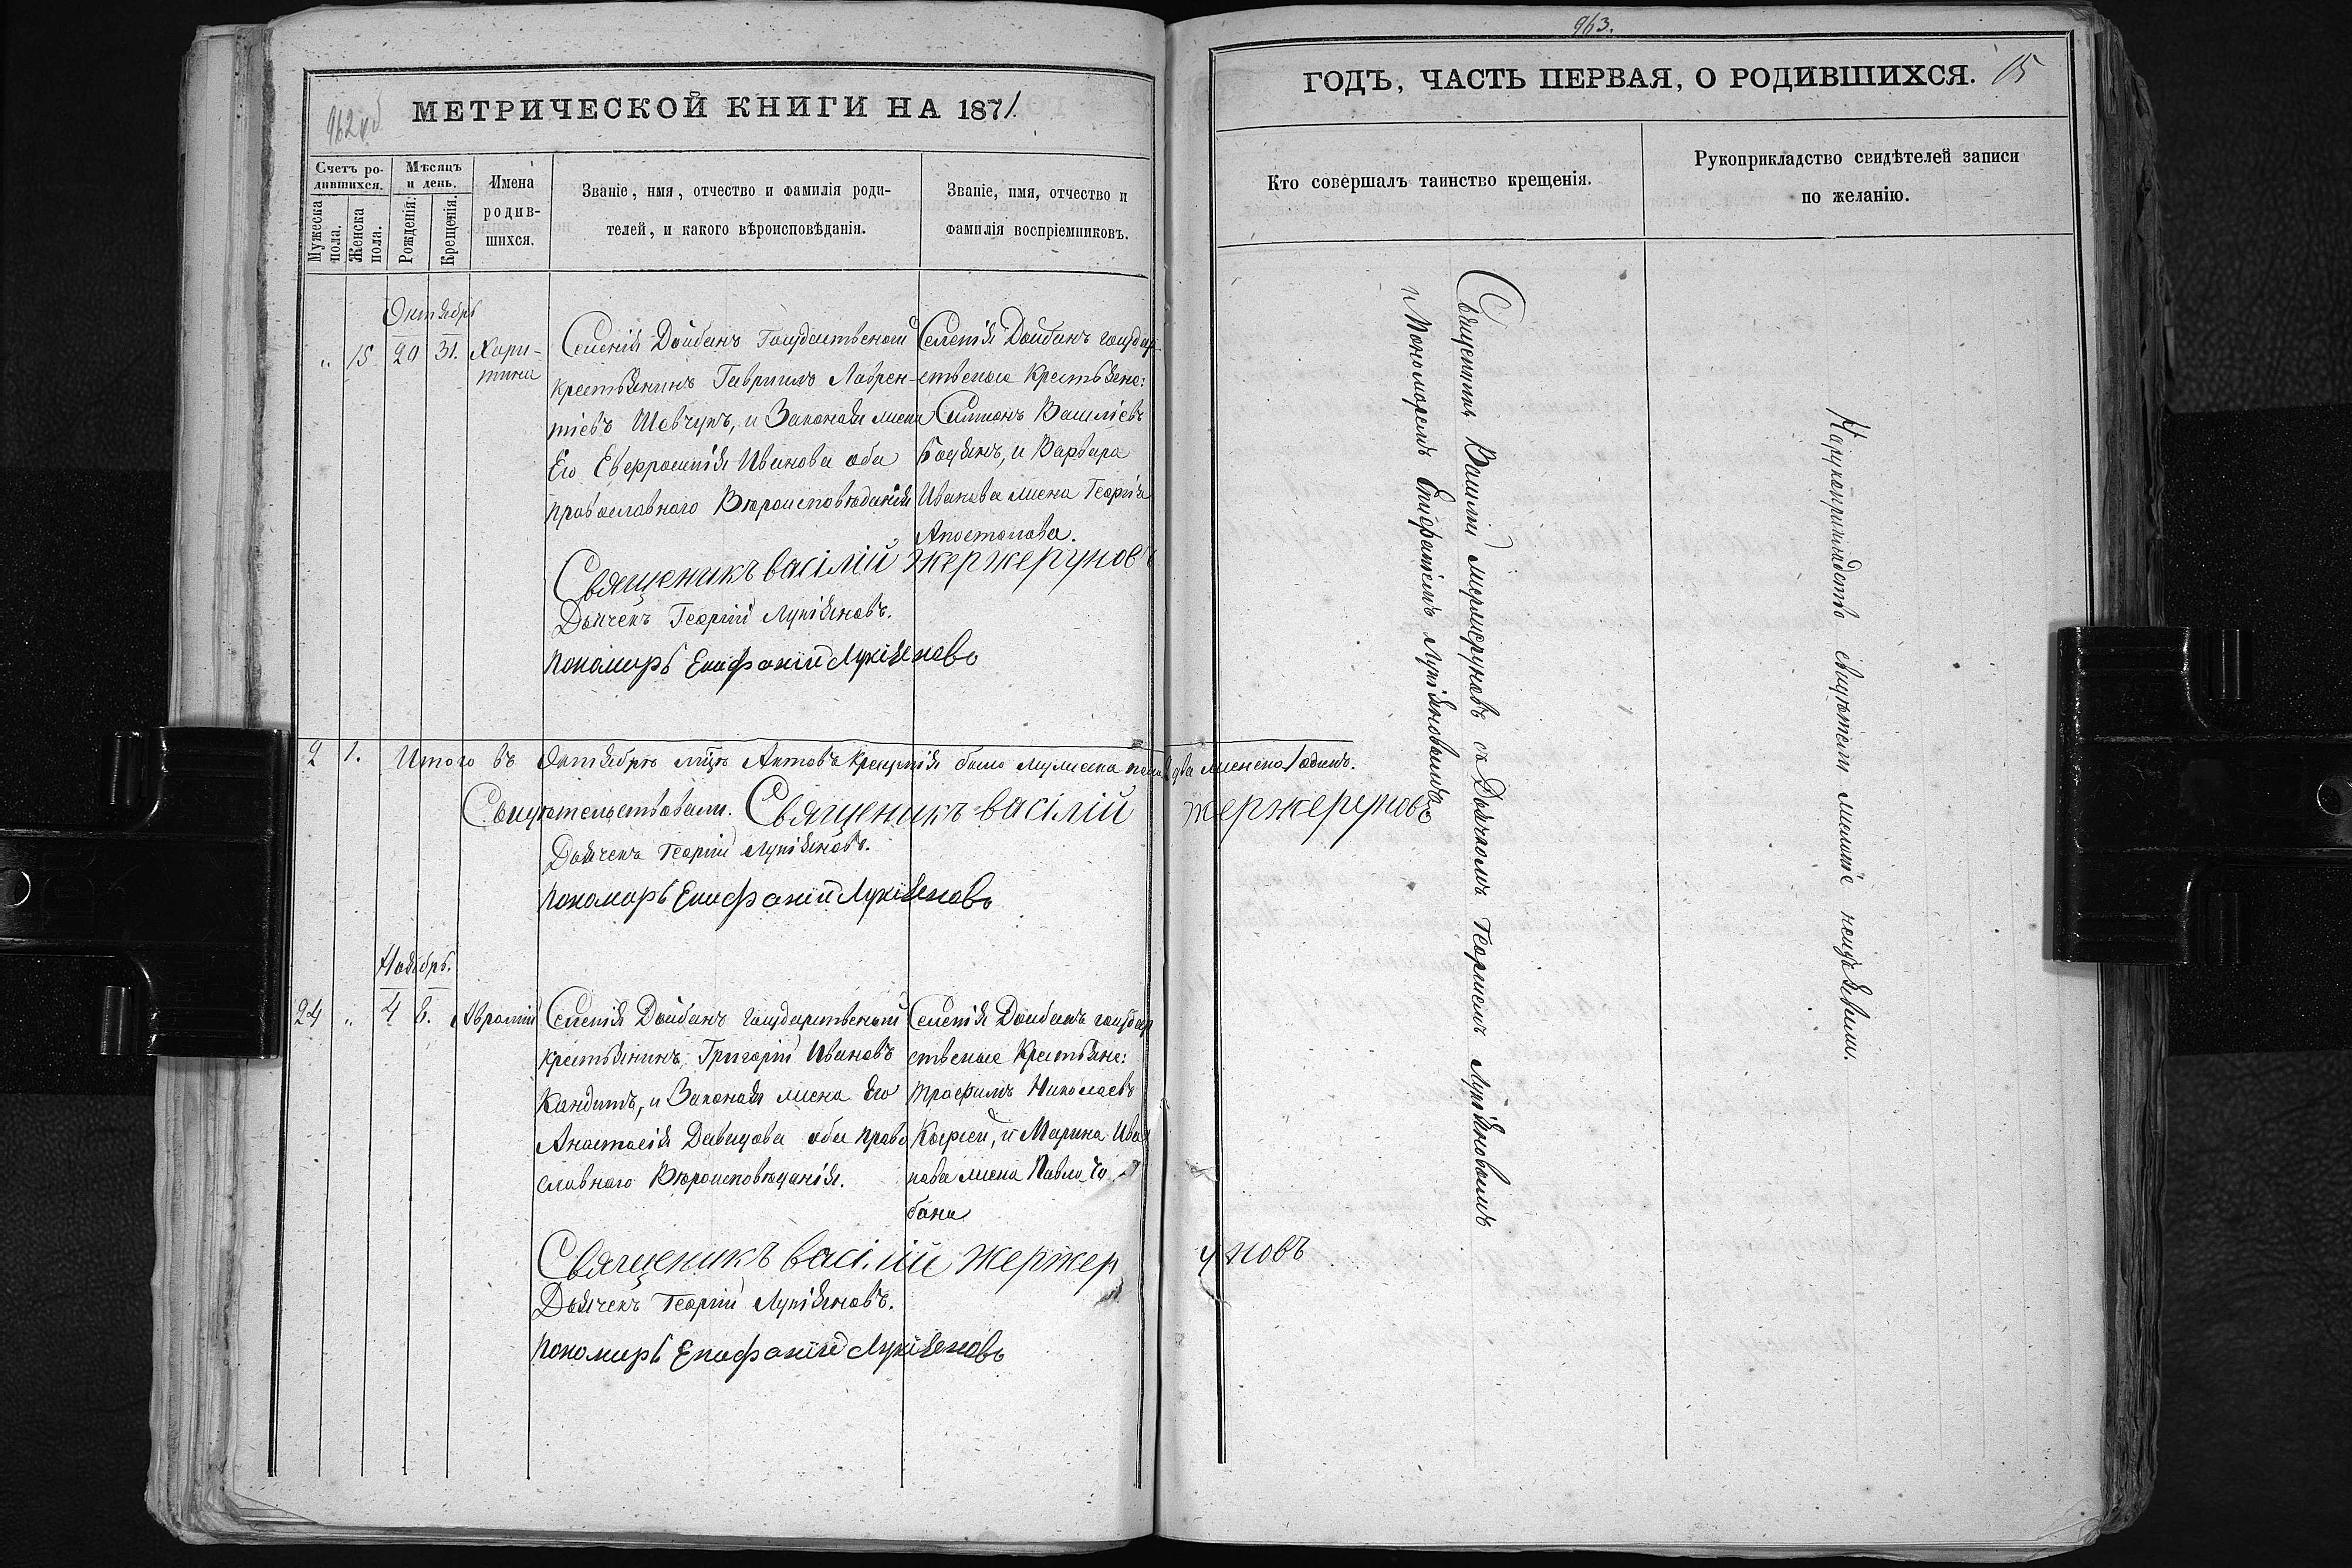 962 об
МЕТРИЧЕСКОЙ КНИГИ НА 1871.
Счетъ ро-
дившихся.
Мужеска пола.
Женска пола.
Мѣсяцъ
и день.
Рожденія.
Крещенія.
Имена
родив-
шихся.
Званіе, имя, отчество и фамилія роди-
телей, и какого вѣроисповѣданія.
Званіе, имя, отчество и
фамилія воспріемниковъ.
Октябрь
„ 15 29 31. Хари-
тина
Селенія Дойбанъ Государственой
крестьянинъ Гавриилъ Лаврен-
тіевъ Шевчукъ, и Законая жена
Его Евфросинія Иванова оба
православнаго Вѣроисповѣданія
Селенія Дойбанъ государ-
ственые Крестьяне:
Симионъ Василіевъ
и Варвара
Иванова жена Георгія
Апостолова.
Священикъ василій жержеруновъ
Дьячекъ Георгій Лукіяновъ.
пономарь Епифаній Лукіяновъ
2 1. Итого въ Октябрѣ мцѣ Актовъ Крещенія было мужеска пола 2 два женска 1 одинъ.
Свидѣтельствовали. Священикъ василій жержеруновъ
Дьячекъ Георгій Лукіяновъ.
пономарь Епифаній Лукіяновъ
Ноябрь.
24 „ 4 8.
Селенія Дойбанъ государственый
крестьянинъ Григорій Ивановъ
Кандитъ, и Законая жена Его
Анастасія Давидова оба право
славнаго Вѣроисповѣданія.
Селенія Дойбанъ государ
ственые Крестьяне:
Трофимъ Николаевъ
и Марина Ива
нова жена Павла Чо
бана
Священикъ василій жержеруновъ
Дьячекъ Георгій Лукіяновъ.
пономарь Епифаній Лукіяновъ
963.
ГОДЪ, ЧАСТЬ ПЕРВАЯ, О РОДИВШИХСЯ. 15
Кто совершалъ таинство крещенія.
Рукоприкладство свидѣтелей записи
по желанію.
Священикъ Василій Жержеруновъ съ Дьячкомъ Георгіемъ Лукіяновымъ
и Пономаремъ Епифаніемъ Лукіяновымъ
Нарукоприкладство свидѣтели желаніе неизъявили.